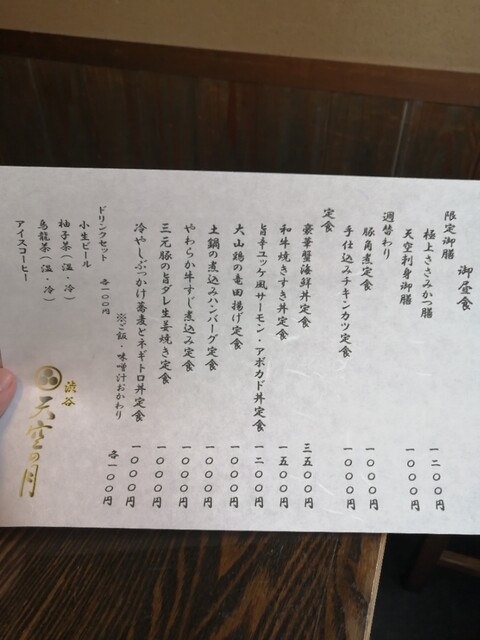 御昼食
限定御膳
極上ささみかつ膳 一二〇〇円
天空刺身御膳 一〇〇〇円
週替わり
豚角煮定食 一〇〇〇円
手仕込みチキンカツ定食 一〇〇〇円
定食
豪華蟹海鮮丼定食 三五〇〇円
和牛焼きすき丼定食 一五〇〇円
旨辛ユッケ風サーモン・アボカド丼定食 一二〇〇円
大山鶏の竜田揚げ定食 一〇〇〇円
土鍋の煮込みハンバーグ定食 一〇〇〇円
やわらか牛すじ煮込み定食 一〇〇〇円
三元豚の旨ダレ生姜焼き定食 一〇〇〇円
冷やしぶっかけ蕎麦とネギトロ丼定食 一〇〇〇円
※ご飯・味噌汁おかわり 各一〇〇円
ドリンクセット 各一〇〇円
小生ビール
柚子茶(温・冷)
烏龍茶(温・冷)
アイスコーヒー
渋谷
天空の月